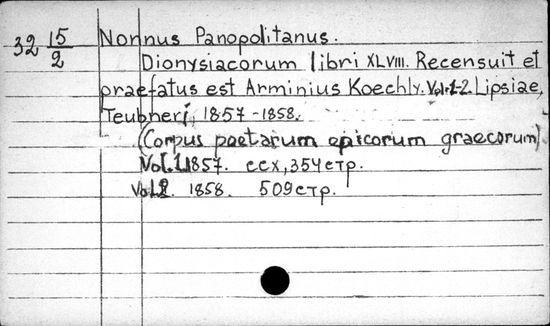 32 15/2 Nonnus Panopolitanus.
Dionysiacorum libri XLVIII. Recensuit et
praefatus est Arminius Koechly. Vol. 1-2. Lipsiae,
Teubneri, 1857-1858.
(Corpus poetarum epicorum graecorum).
Vol. 1. 1857. ccx, 354 стр.
Vol. 2. 1858. 509 стр.